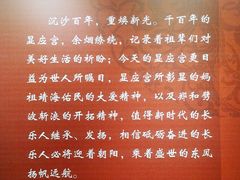 沉沙百年，重焕新光。千百年的
显应宫，余烟缭绕，记录着祖辈们对
美好生活的祈盼；今天的显应宫更日
益为世人所瞩目，显应宫所彰显的妈
祖靖海佑民的大爱精神，以及郑和劈
波斩浪的开拓精神，值得新时代的长
乐人继承、发扬，相信砥砺奋进的长
乐人必将迎着朝阳，乘着盛世的东风
扬帆远航。